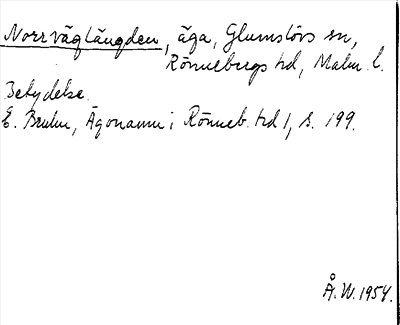 Norrväglängden, äga, Glumslövs sn,
Rönnebergs hd, Malm. l.
Betydelse.
E. Bruhn, Ägonamn i Rönneb. hd 1, s. 199.
Å.W. 1954.